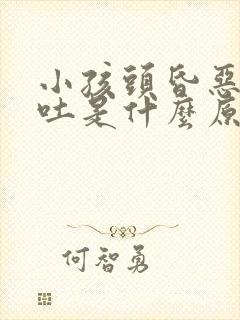 小孩頭昏惡
吐是什麼原
何智勇